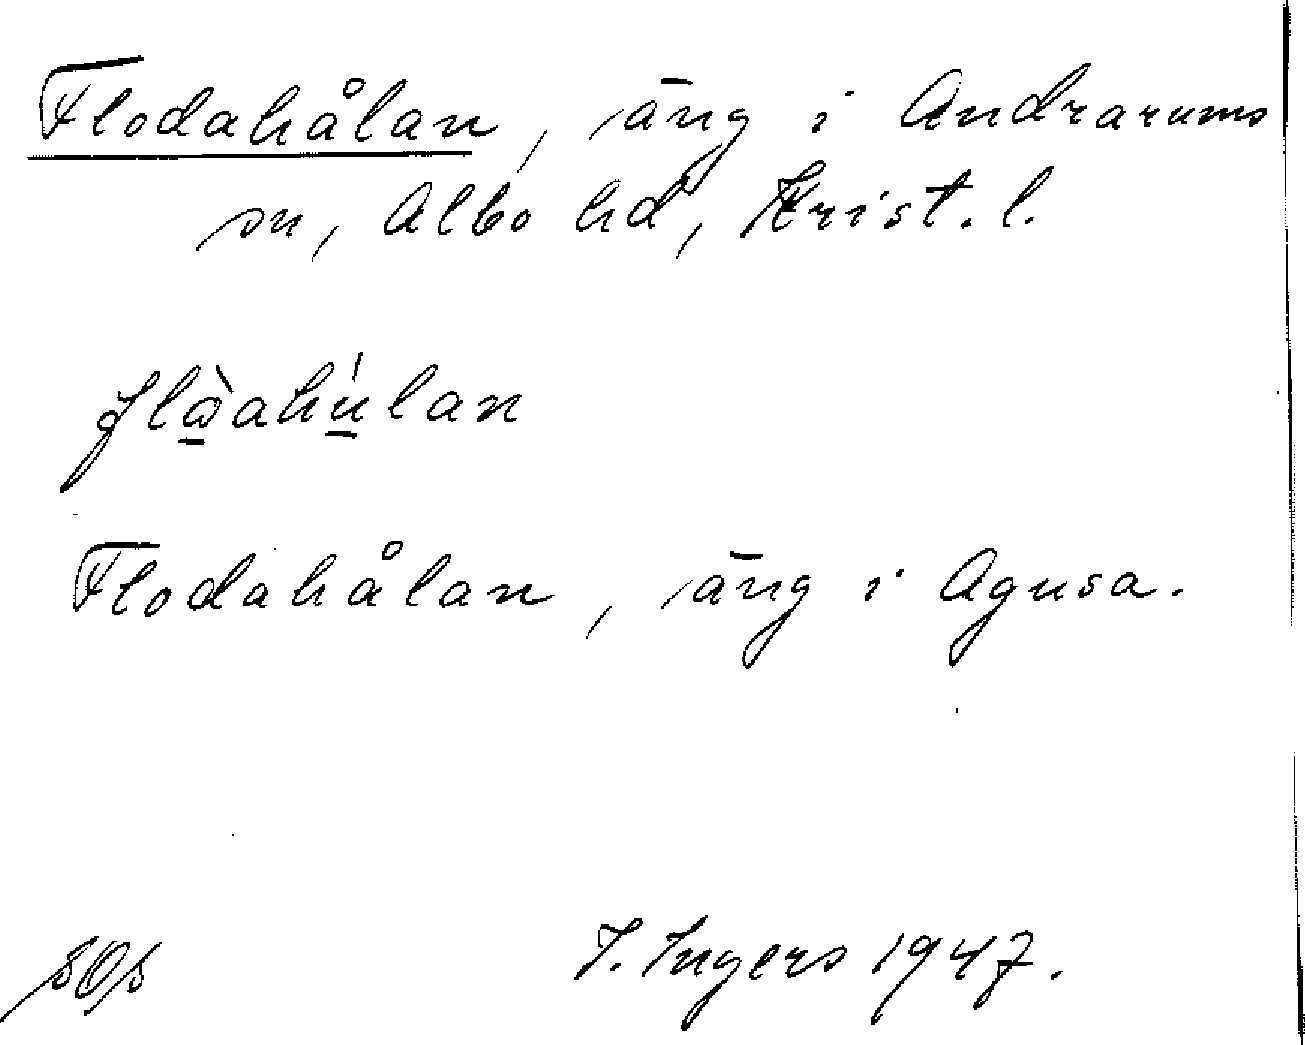 Flodahålan, äng i Andrarums
sn, Albo hd, Krist. l.
Flodahålan, äng i Agusa.
I. Ingers 1947.